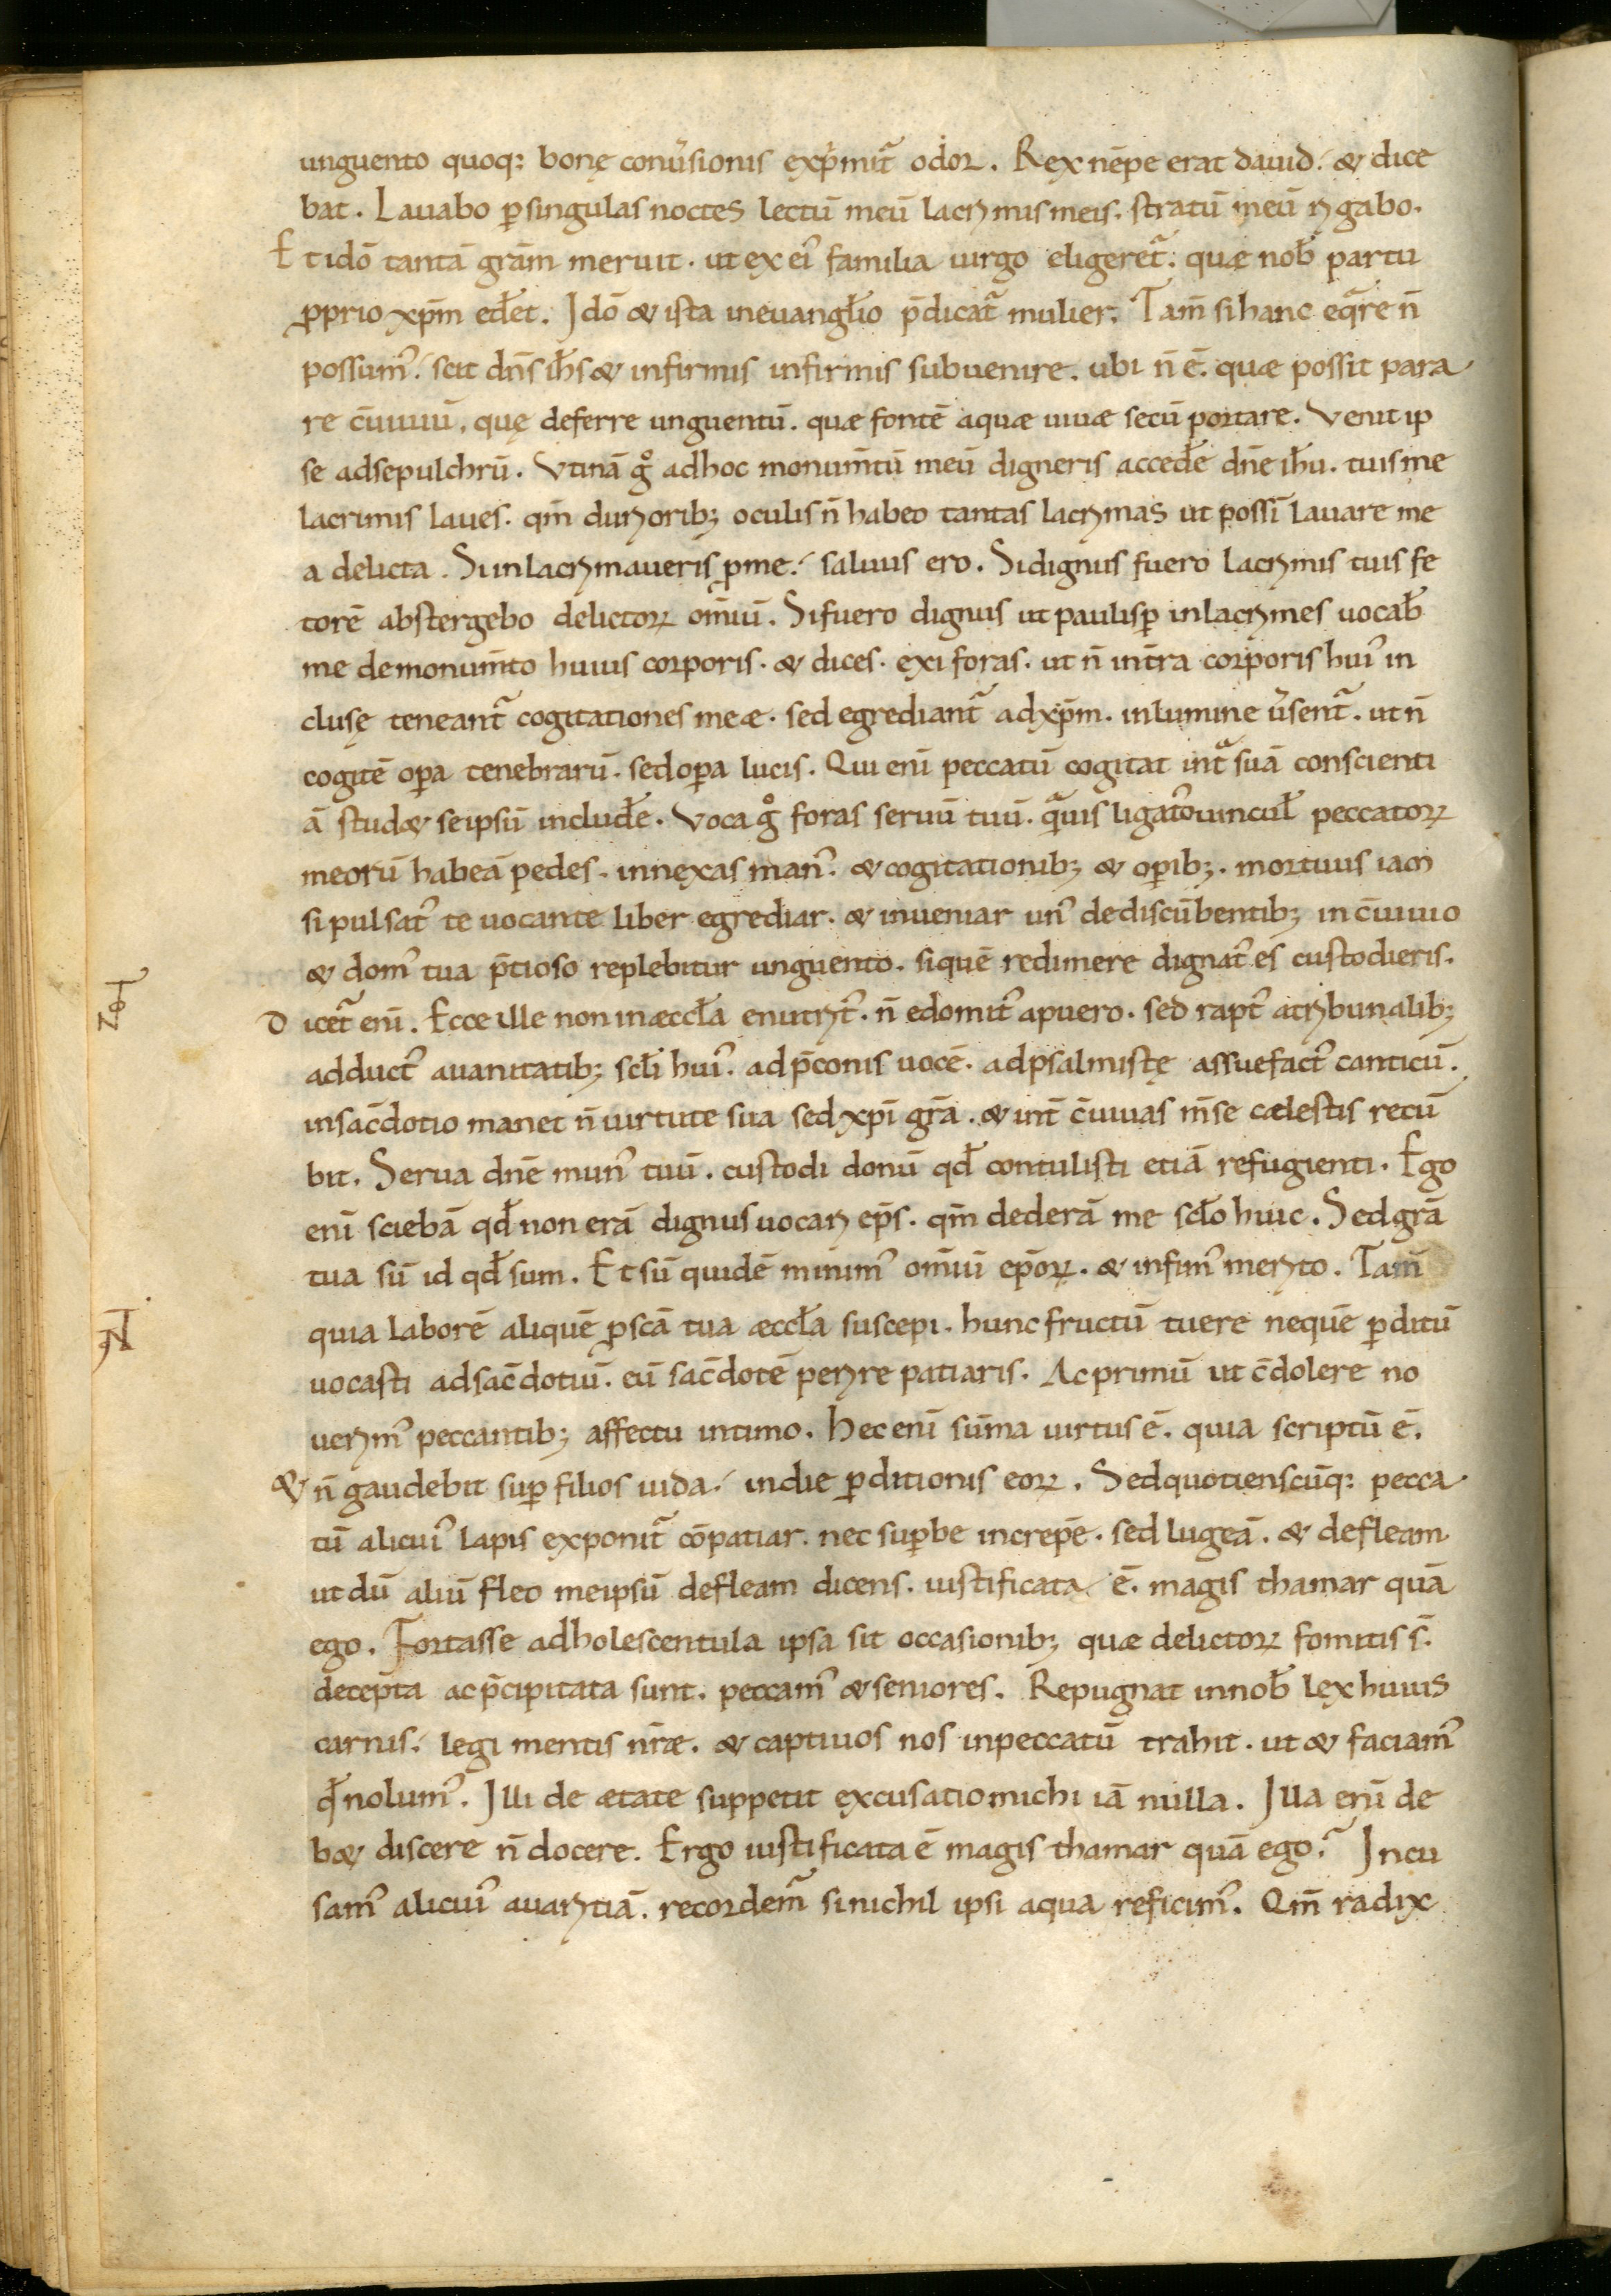 unguento quoq; bonę conu̓sionis exp̓mit᷑ odor. Rex nēpe erat dauid. & dice
bat. Lauabo ꝑ singulas noctes lectū meū lacrymis meis. stratū meū rygabo.
Et idō tantā grām meruit. ut ex ei᾽ familia uirgo eligeret᷑. quæ nob̄ partu
ꝓprio xp̄m ed̄et. Idō & ista in euangl̄io p̄dicat᷑ mulier. Tam̄ si hanc eq̄re n̄
possum᾽. scit dn̄s ih̄s & infirmis infirmis subuenire. ubi n̄ ē. quæ possit para
re c̄uiuiū. quę deferre unguentū. quæ fontē aquæ uiuæ secū portare. Venit ip
se ad sepulchrū. Vtinā g̊ ad hoc monum̄tū meū digneris acced̄e dn̄e ih̄u. tuis me
lacrimis laues. qm̄ duryorib; oculis n̄ habeo tantas lacrymas ut possī lauare me
a delicta. Si inlacrymaueris ꝓ me. saluus ero. Si dignus fuero lacrymis tuis fe
torē abstergebo delictoꝝ om̄iū. Si fuero dignus ut paulisꝑ inlacrymes uocab̄
me de monum̄to huius corporis. & dices. exi foras. ut n̄ int̄ra corporis hui᾽ in
clusę teneant᷑ cogitationes meæ. sed egrediant᷑ ad xp̄m. in lumine u̓sent᷑. ut n̄
cogitē oꝑa tenebrarū. sed oꝑa lucis. Qui enī peccatū cogitat int᷑ suā conscienti
ā stud& se ipsū includ̄e. Voca g̊ foras seruū tuū. qᷓuis ligato᾽ uincul̄ peccatoꝝ
meorū habeā pedes. innexas man᾽. & cogitationib; & oꝑib;. mortuus iam
si pulsat᾽ te uocante liber egrediar. & inueniar un᾽ de discūbentib; in c̄uiuio
& dom᾽ tua p̄tioso replebitur unguento. si quē redimere dignat᾽ es custodieris.
Dicet᷑ enī. Ecce ille non in æccl̄a enutryt᾽. n̄ edomit᾽ a puero. sed rapt᾽ a trybunalib;
adduct᾽ a uanitatib; scl̄i hui᾽. ad p̄conis uocē. ad psalmistę assuefact᾽ canticū.
in sac̄dotio manet n̄ uirtute sua sed xp̄i grā. & int̄ c̄uiuas m̄se cælestis recū
bit. Serua dn̄e mun᾽ tuū. custodi donū qd̄ contulisti etiā refugienti. Ego
enī sciebā qd̄ non erā dignus uocary ep̄s. qm̄ dederā me scl̄o huic. Sed grā
tua sū id qd̄ sum. Et sū quidē minim᾽ om̄iū ep̄oꝝ. & infim᾽ meryto. Tam̄
quia laborē aliquē ꝓ scā tua æccl̄a suscepi. hunc fructū tuere ne quē ꝑditū
uocasti ad sac̄dotiū. eū sac̄dotē peryre patiaris. Ac primū ut c̄dolere no
uerym᾽ peccantib; affectu intimo. Hec enī sūma uirtus ē. quia scriptū ē.
& n̄ gaudebit suꝑ filios iuda. in die ꝑditionis eoꝝ. Sed quotienscūq; pecca
tū alicui᾽ lapis exponit᷑ cōpatiar. nec suꝑbe increpē. sed lugeā. & defleam
ut dū aliū fleo me ipsū defleam dicens. iustificata ē. magis thamar quā
ego. Fortasse adholescentula ipsa sit occasionib; quæ delictoꝝ fomitis s̄.
decepta ac p̄cipitata sunt. peccam᾽ & seniores. Repugnat in nob̄ lex huius
carnis. legi mentis n̄ræ. & captiuos nos in peccatū trahit. ut & faciam᾽
qd̄ nolum᾽. Illi de ætate suppetit excusatio michi iā nulla. Illa enī de
b& discere n̄ docere. Ergo iustificata ē magis thamar quā ego. Incu
sam᾽ alicui᾽ auarytiā. recordem᷑ si nichil ipsi aqua reficim᾽. Qm̄ radix